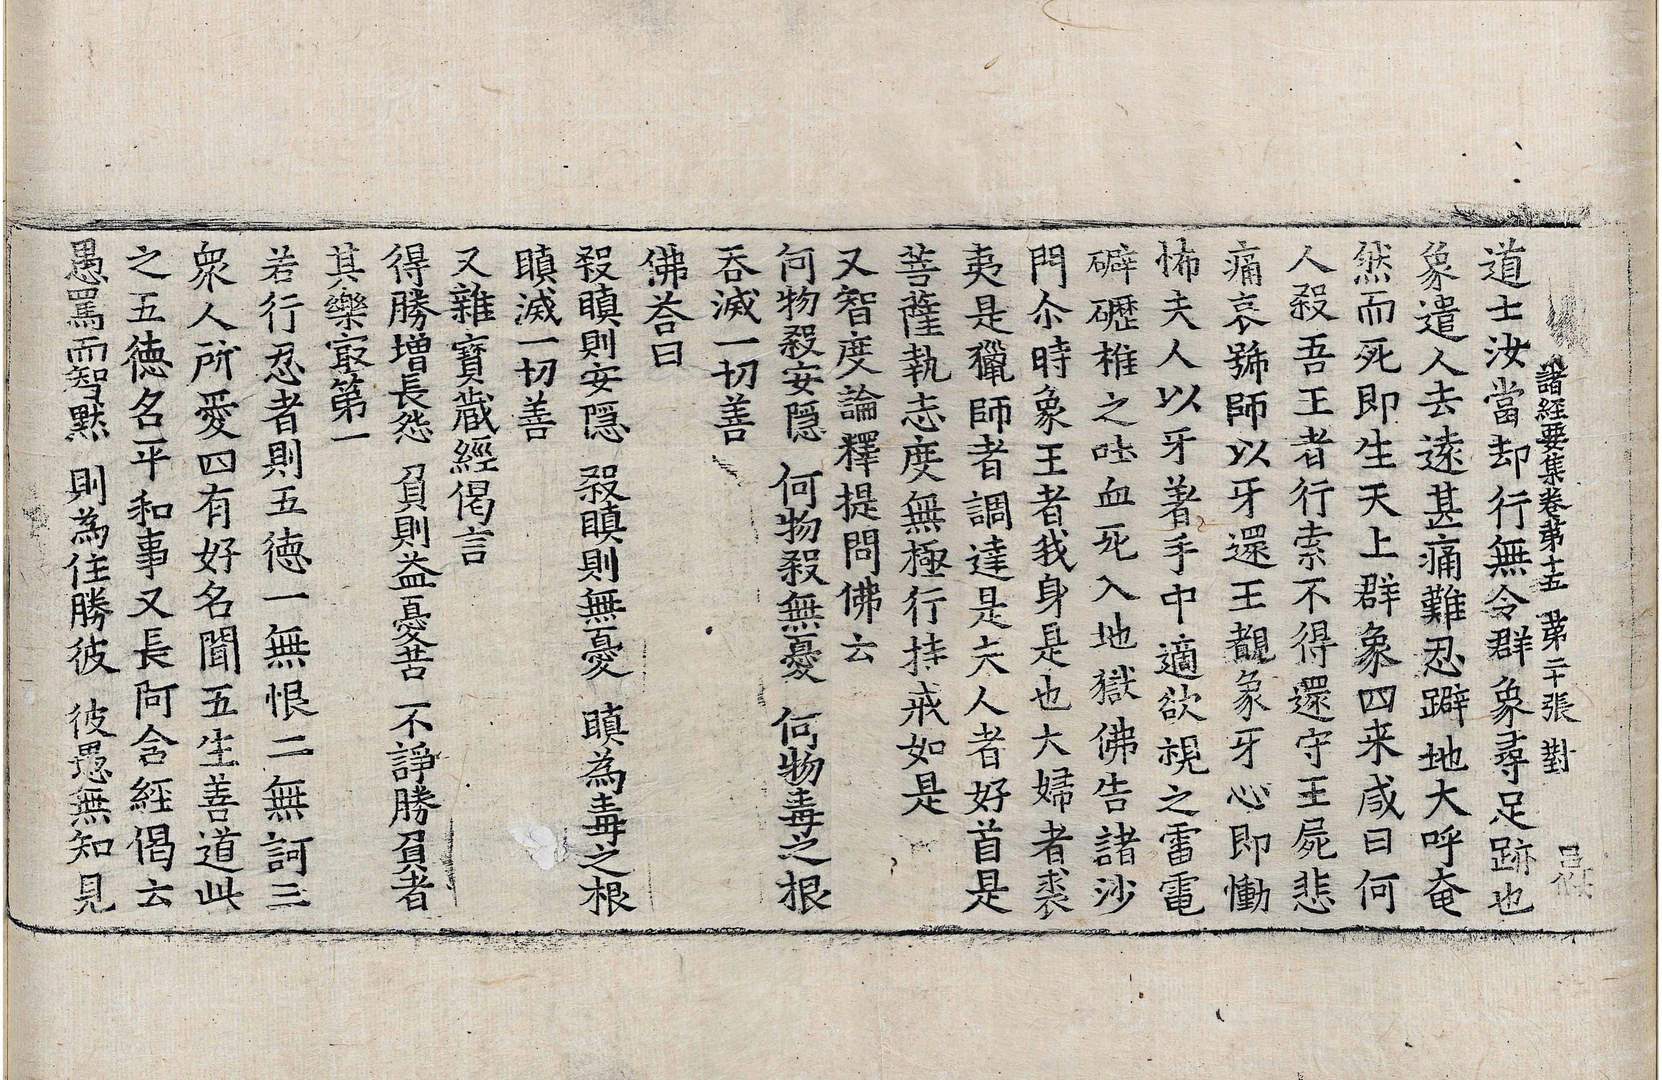 諸經要集卷第十五 第二十張 對
道士汝當却行無令群象尋足跡也
象遣人去遠甚痛難忍躃地大呼奄
然而死即生天上群象四来咸曰何
人殺吾王者行索不得還守王屍悲
痛哀號師以牙還王覩象牙心即慟
怖夫人以牙著手中適欲視之雷電
礔礰椎之吐血死入地獄佛告諸沙
門尒時象王者我身是也大婦者裘
夷是獵師者調達是夫人者好首是
菩薩執志度無極行持戒如是
又智度論釋提問佛云
何物殺安隱 何物殺無憂 何物毒之根
吞滅一切善
佛荅曰
殺瞋則安隱 殺瞋則無憂 瞋為毒之根
瞋滅一切善
又雜寶藏經偈言
得勝增長怨 負則益憂苦 不諍勝負者
其樂㝡第一
若行忍者則五德一無恨二無訶三
衆人所愛四有好名聞五生善道此
之五德名平和事又長阿含經偈云
愚罵而智默 則為住勝彼 彼愚無知見